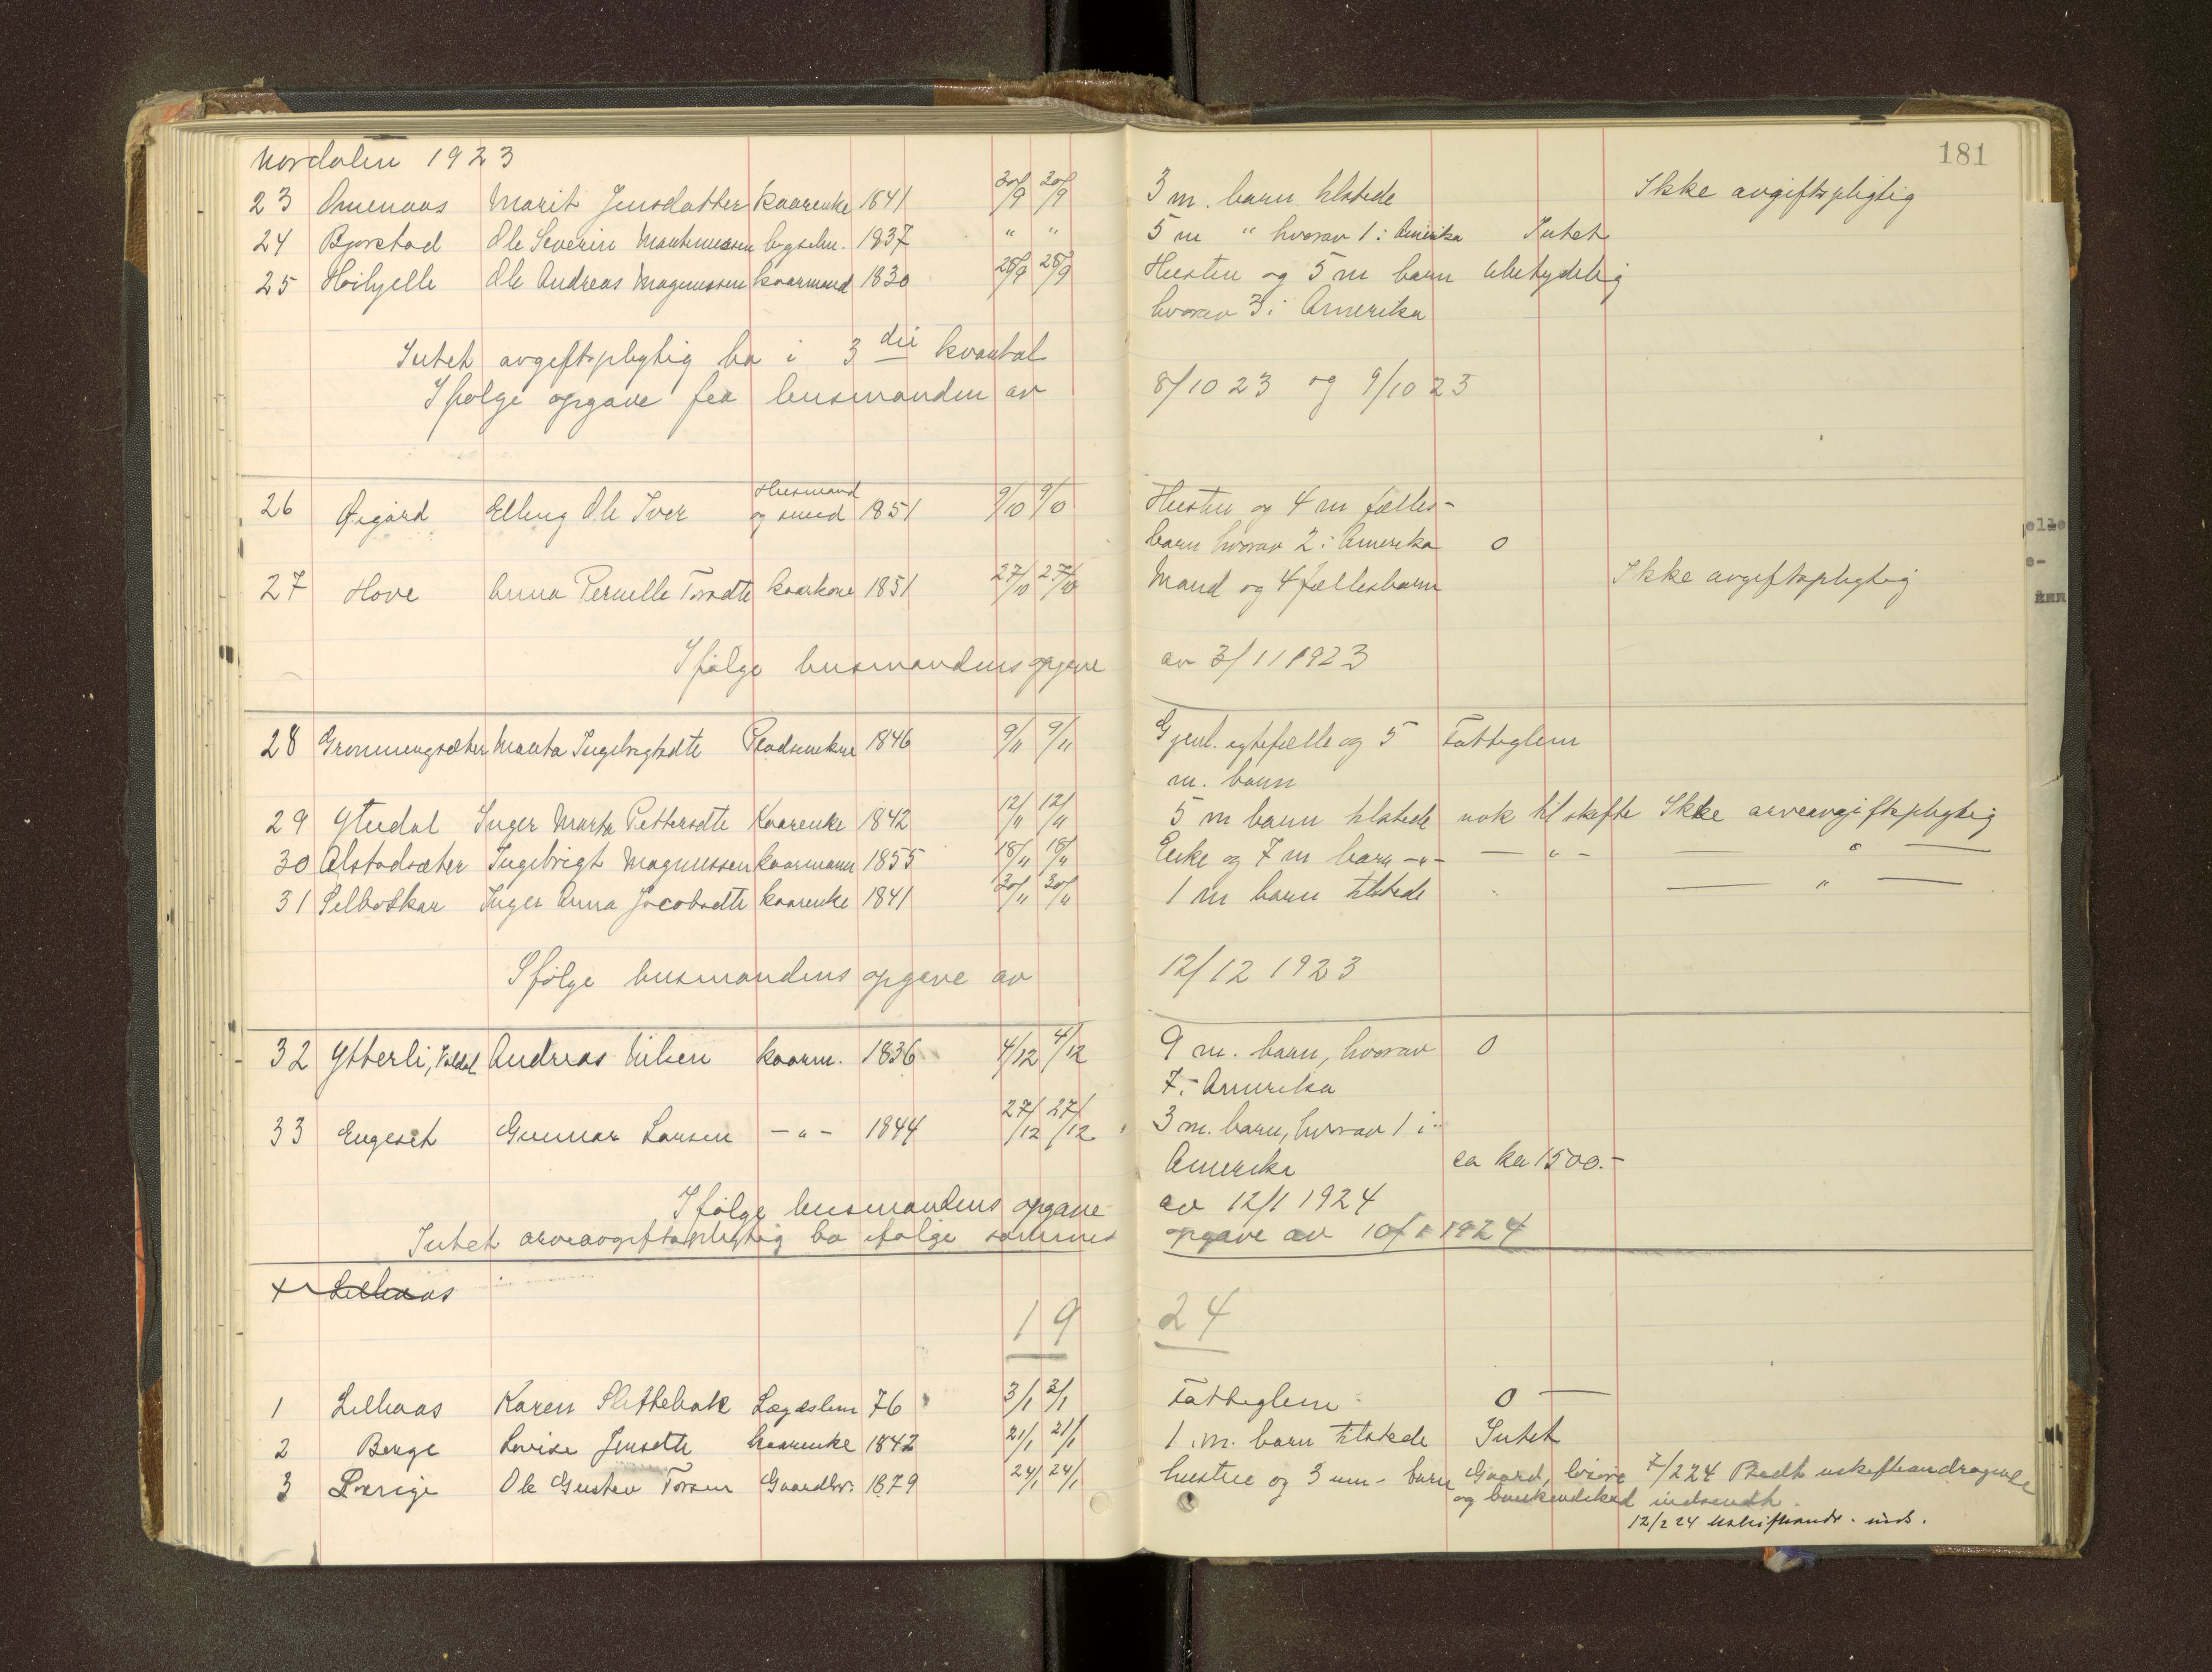 181
Nordalen 1923
23 Omenaas Marit Jensdatter kaarenke 1841 20/9 20/9 3 m. barn tilstede Ikke avgiftspligtig
24 Bjørstad Ole Severin Martinussen bygselm. 1837 " " 5 m " hvorav 1 i Amerika Intet
25 Høihjelle Ole Andreas Magnussen kaarmand 1830 28/9 28/9 Hustru og 5 m barn Ubetydelig
hvorav 3 i Amerika
Intet avgiftspligtig bo i 3die kvartal
Ifølge opgave fra lensmanden av 8/10 23 og 9/10 23
26 Øigård Elling Ole Iver Husmand og smed 1851 9/10 9/10 Hustru og 4 m fælles-
barn hvorav 2 i Amerika 0
27 Hove Anna Pernille Torsdtr kaarkone 1851 27/10 27/10 Mand og 4 fællesbarn Ikke avgiftspligtig
Ifølge lensmandens opgave av 3/11 1923
28 Grønningsæter Marta Ingebrigtsdtr Pladsenke 1846 9/11 9/11 Gjenl. egtefælle og 5 Fattiglem
m. barn
29 Ytredal Inger Marta Pettersdtr Kaarenke 1842 12/11 12/11 5 m barn tilstede nok til skifte Ikke arveavgiftspligtig
30 Alstadsæter Ingebrigt Magnussen kaarmann 1855 18/11 18/11 Enke og 7 m barn -"- — " — — " —
31 Selboskar Inger Anna Jacobsdtr kaarenke 1841 30/11 30/11 1 m barn tilstede — " —
Ifølge lensmandens opgave av 12/12 1923
32 Ytterli, Valdal Andreas Nilsen kaarm. 1836 4/12 4/12 9 m. barn, hvorav 0
7 i Amerika
33 Engeset Gunnar Larsen -"- 1844 27/12 27/12 3 m. barn, hvorav 1 i
Amerika ca kr 1500.-
Ifølge lensmandens opgave av 12/1 1924
Intet arveavgiftspligtig bo ifølge sammes opgave av 10/1 1924
+ Lilleaas
19 24
1 Lilleaas Karen Slettebak Lægdslem 76 3/1 3/1 Fattiglem 0 —
2 Berge Lovise Jensdtr kaarenke 1842 21/1 21/1 1 m. barn tilstede Intet
3 Ole Gustav Torsen Gaardbr. 1879 24/1 24/1 hustru og 3 um. barn Gaard, løsøre 7/2 24 Bedt uskifteandragende
og bankindskud indsendt.
12/2 24 Uskifteandr. inds.